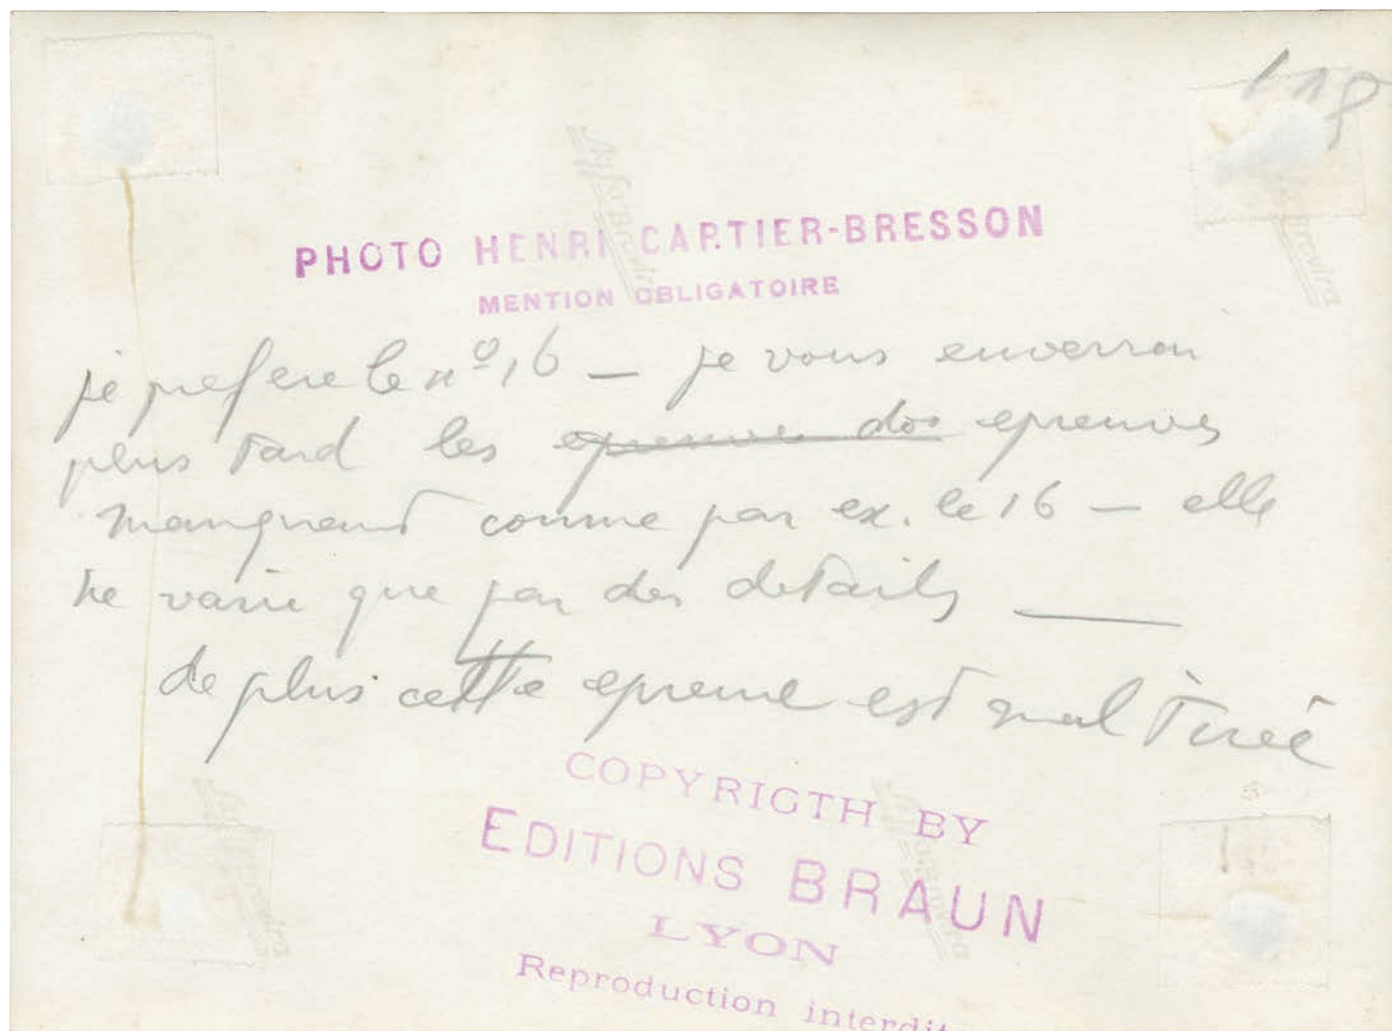 118
PHOTO HENRI CARTIER-BRESSON
MENTION OBLIGATOIRE
je prefere le nº 16 — je vous enverrai
plus tard les epreuves des epreuves
manquant comme par ex. le 16 — elle
ne varie que par des details —
de plus cette epreuve est mal tirée
COPYRIGTH BY
EDITIONS BRAUN
LYON
Reproduction interdite